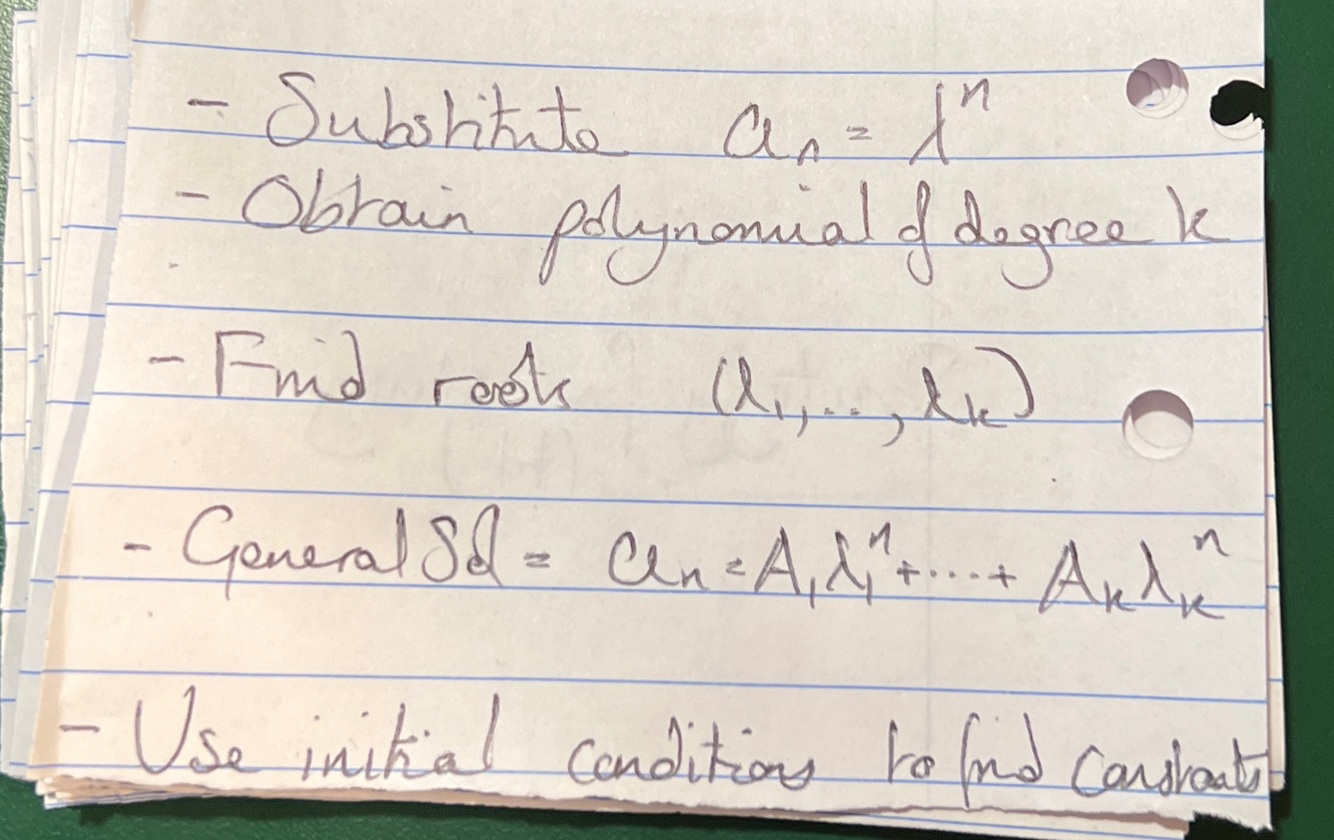 - Substitute aₙ = λⁿ
- Obtain polynomial of degree k
- Find roots (λ₁,..,λₖ)
- General Sol = aₙ = A₁λ₁ⁿ+....+ Aₖλₖⁿ
- Use initial conditions to find constants